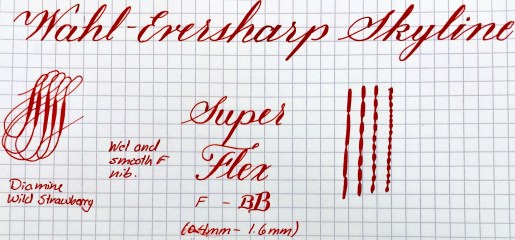 Wahl-Eversharp Skyline
Super
Flex
F - BB
(0.4mm - 1.6mm)
Wet and
smooth F
nib.
Diamine
Wild Strawberry